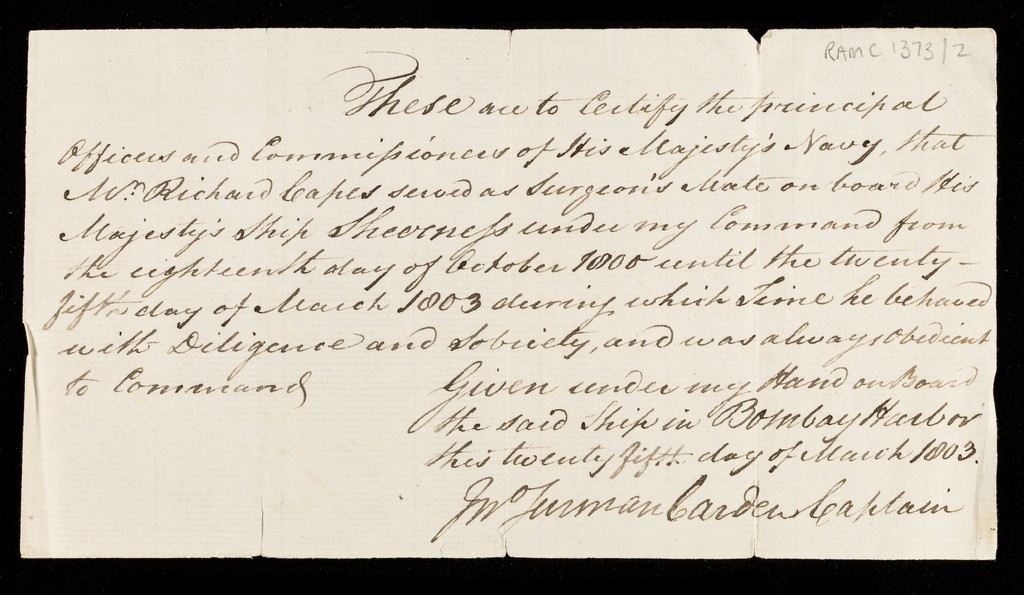 RAMC 1373/2
These are to Certify the principal
Officers and Commissioners of His Majesty's Navy, that
Mr. Richard Capes served as Surgeon's Mate on board His
Majesty's Ship Sheerness under my Command from
the eighteenth day of October 1800 until the twenty-
fifth day of March 1803 during which Time he behaved
with Diligence and Sobriety, and was always obedient
to Command
Given under my Hand on Board
the said Ship in Bombay Harbor
this twenty fifth day of March 1803.
Jno Surman Carden Captain